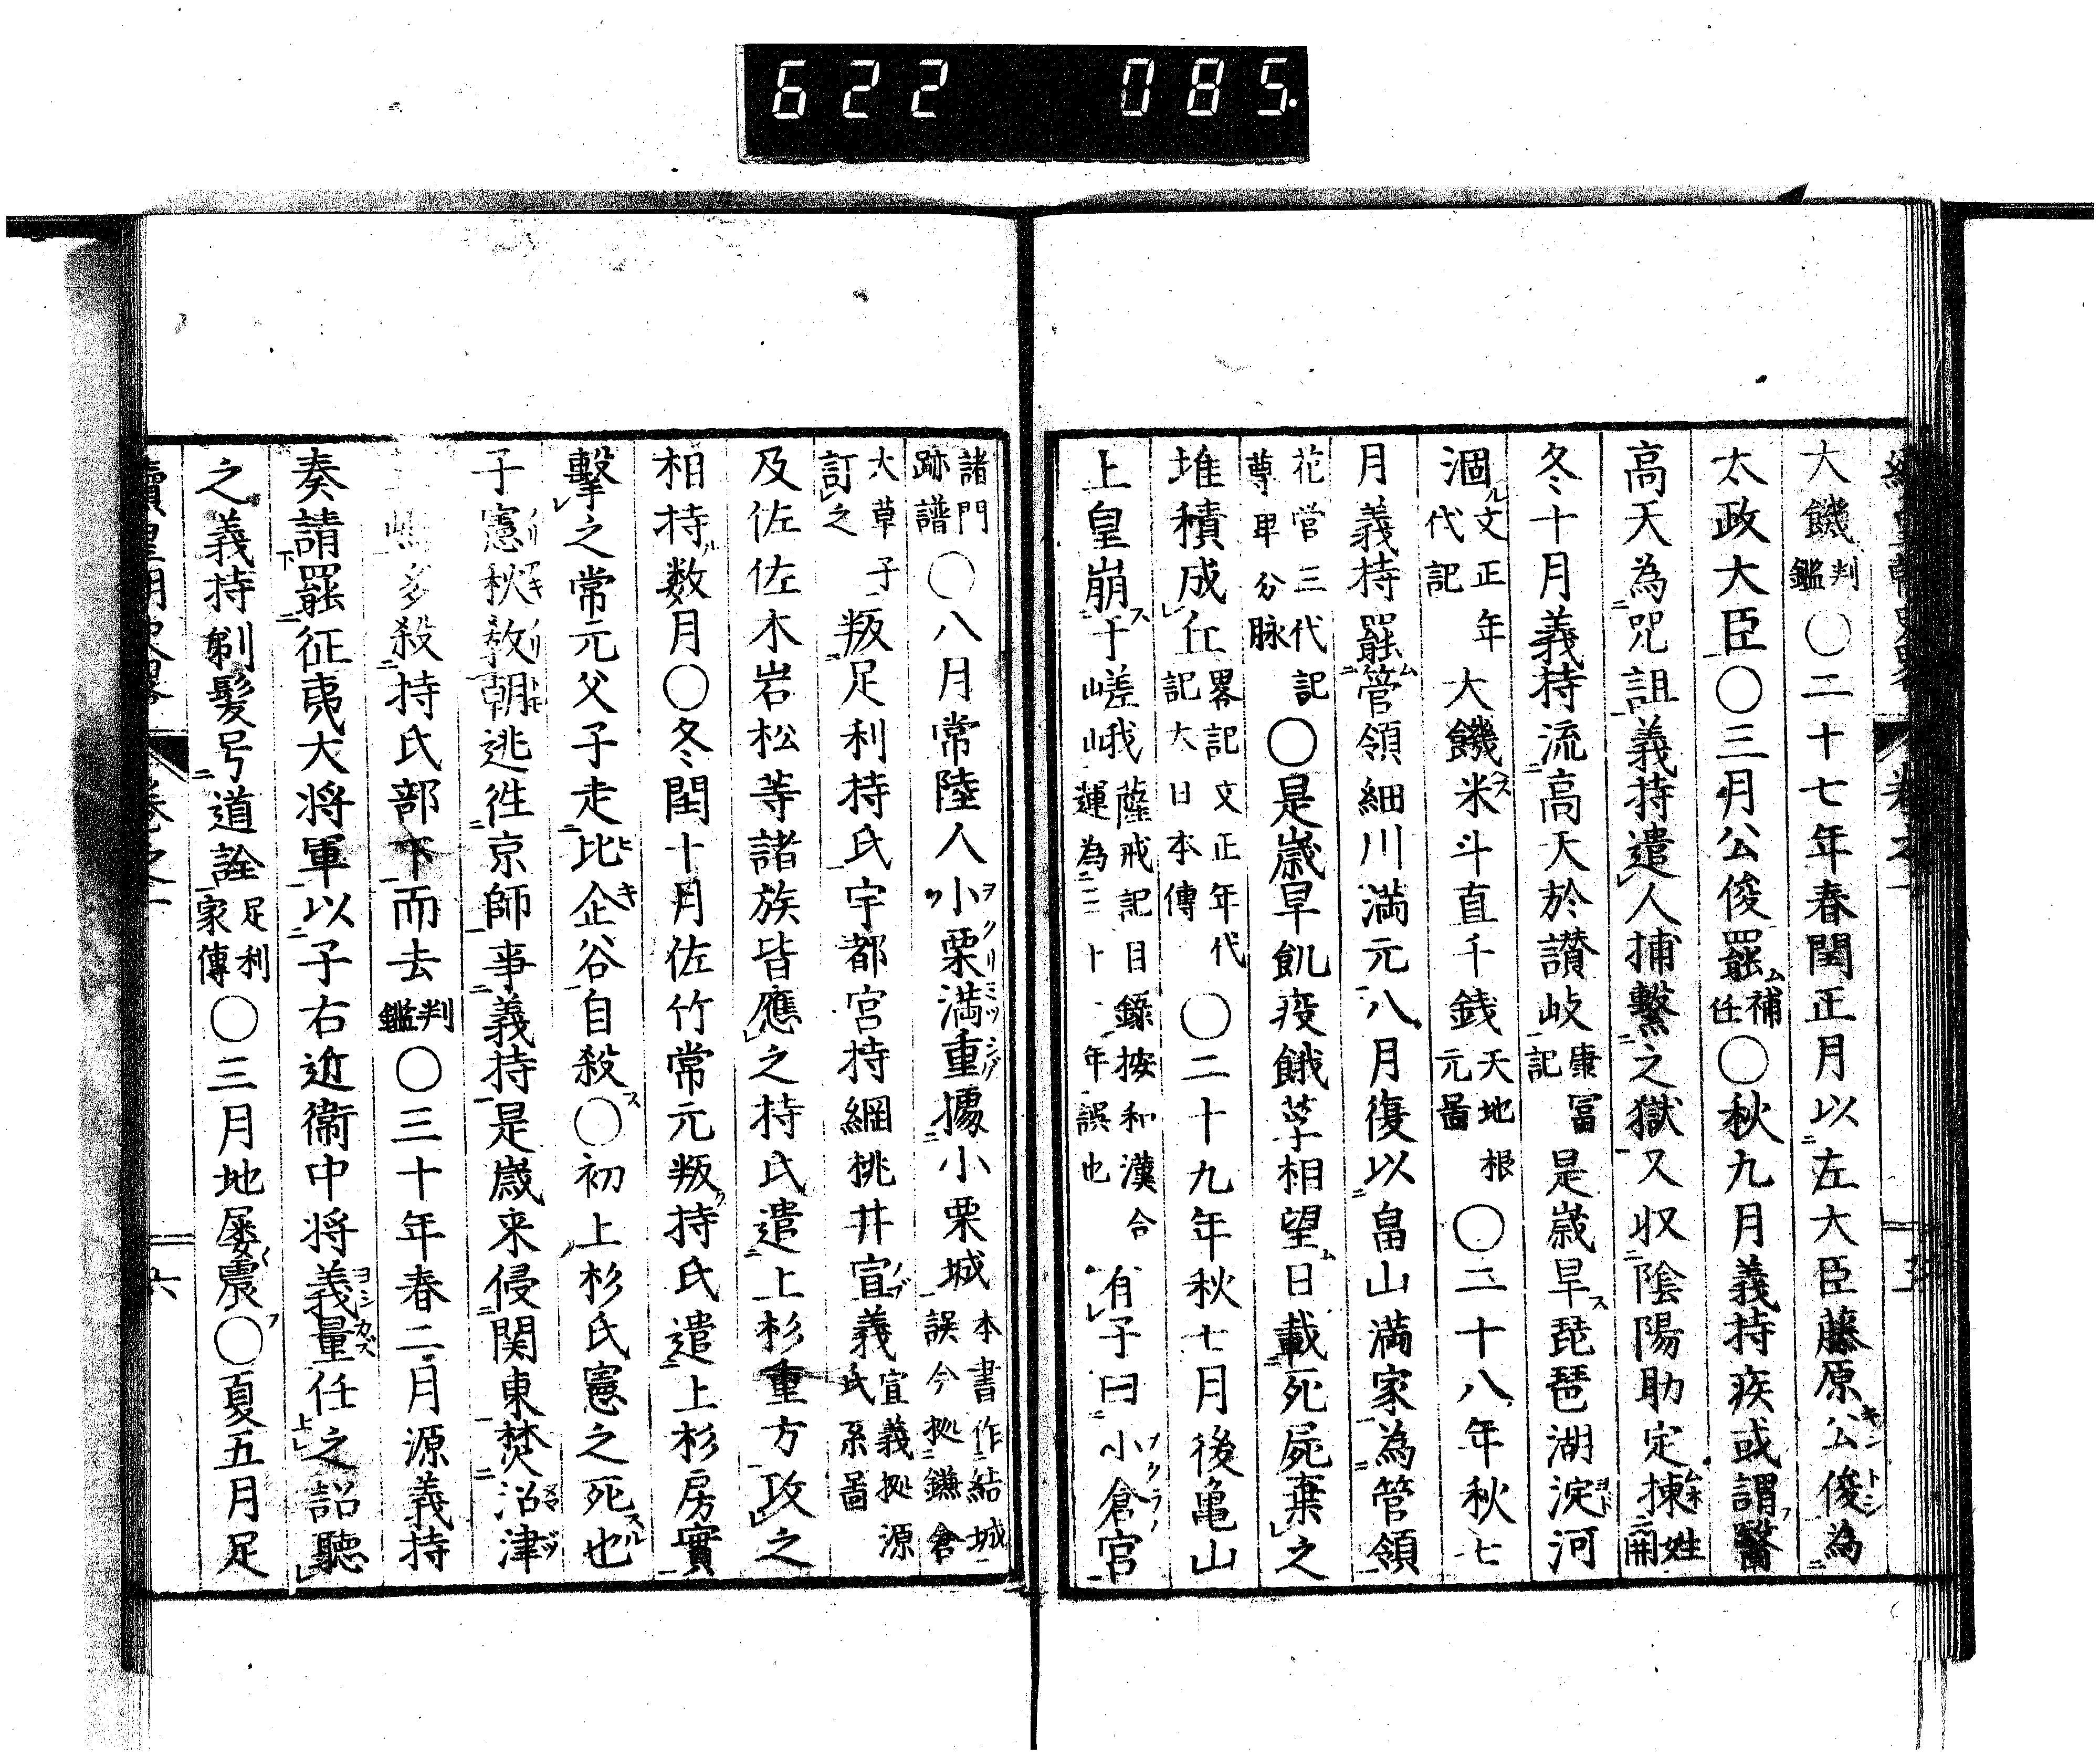 622 085.
大饑判鑑〇二十七年春閏正月以左大臣藤原公俊為
太政大臣〇三月公俊罷補任〇秋九月義持疾或謂醫
高天為咒詛義持遣人捕繫之獄又収陰陽助定棟姓開
冬十月義持流高天於讃岐康冨記是歳旱琵琶湖淀河
涸文正年代記大饑米斗直千銭天地根元圖〇二十八年秋七
月義持罷管領細川満元八月復以畠山満家為管領
花営三代記尊卑分脉〇是歳旱飢疫餓莩相望日載死屍棄之
堆積成丘畧記文正年代記大日本傳〇二十九年秋七月後亀山
上皇崩于嵯峨薩戒記目錄按和漢合運為二十年誤也有子曰小倉宮
諸門跡譜〇八月常陸人小栗満重據小栗城本書作結城誤今拠鎌倉
大草子訂之叛足利持氏宇都宮持綱桃井宣義宣義拠源氏系圖
及佐佐木岩松等諸族皆應之持氏遣上杉重方攻之
相持数月〇冬閏十月佐竹常元叛持氏遣上杉房實
擊之常元父子走比企谷自殺〇初上杉氏憲之死也
子憲秋教朝逃徃京師事義持是歳来侵関東焚沼津
多殺持氏部下而去判鑑〇三十年春二月源義持
奏請罷征夷大将軍以子右近衞中将義量任之詔聽
之義持剃髮号道詮足利家傳〇三月地屡震〇夏五月足
六